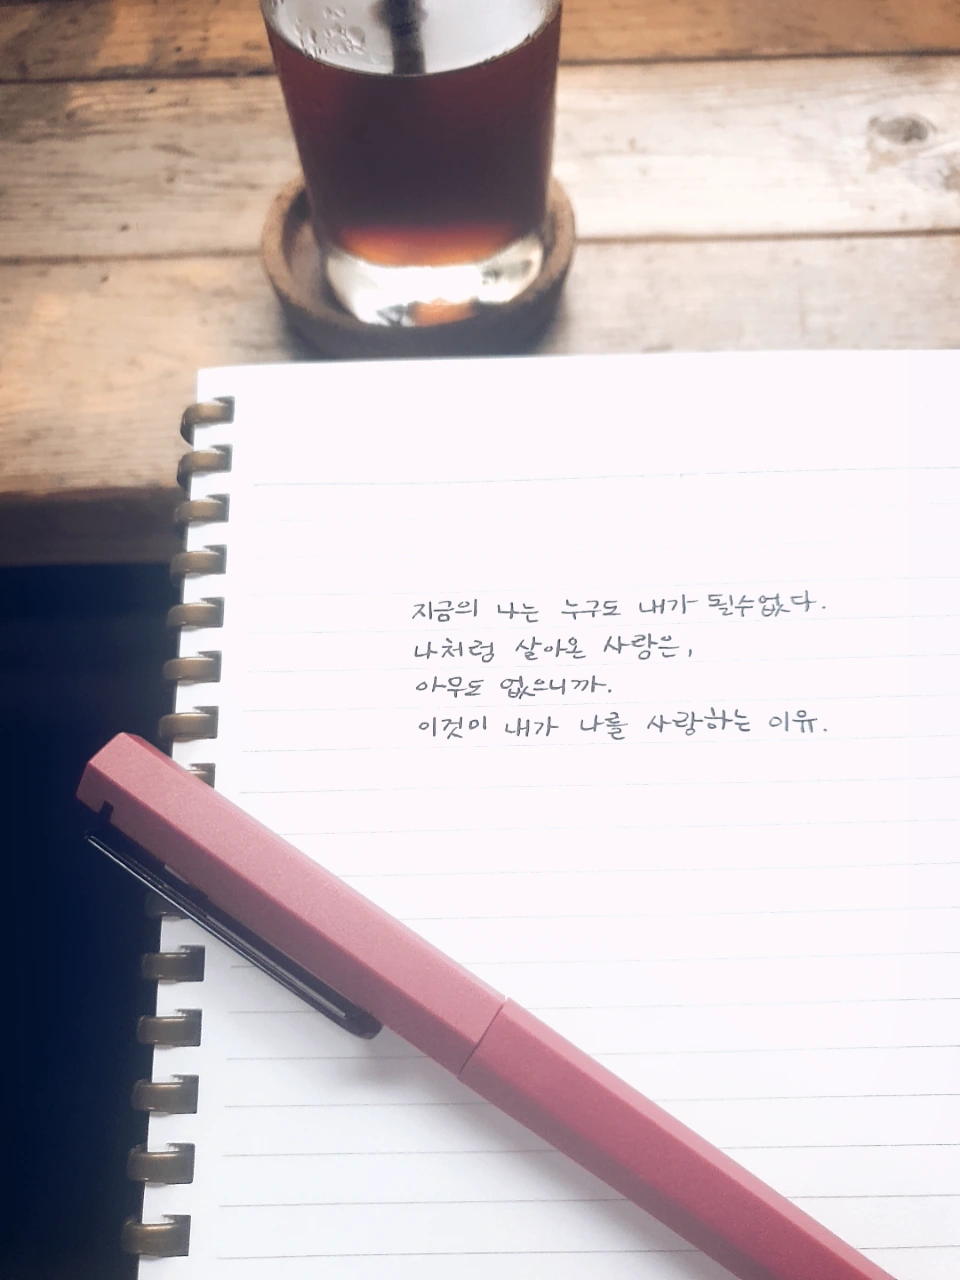 지금의 나는 누구도 내가 될수없다.
나처럼 살아온 사랑은,
아무도 없으니까.
이것이 내가 나를 사랑하는 이유.